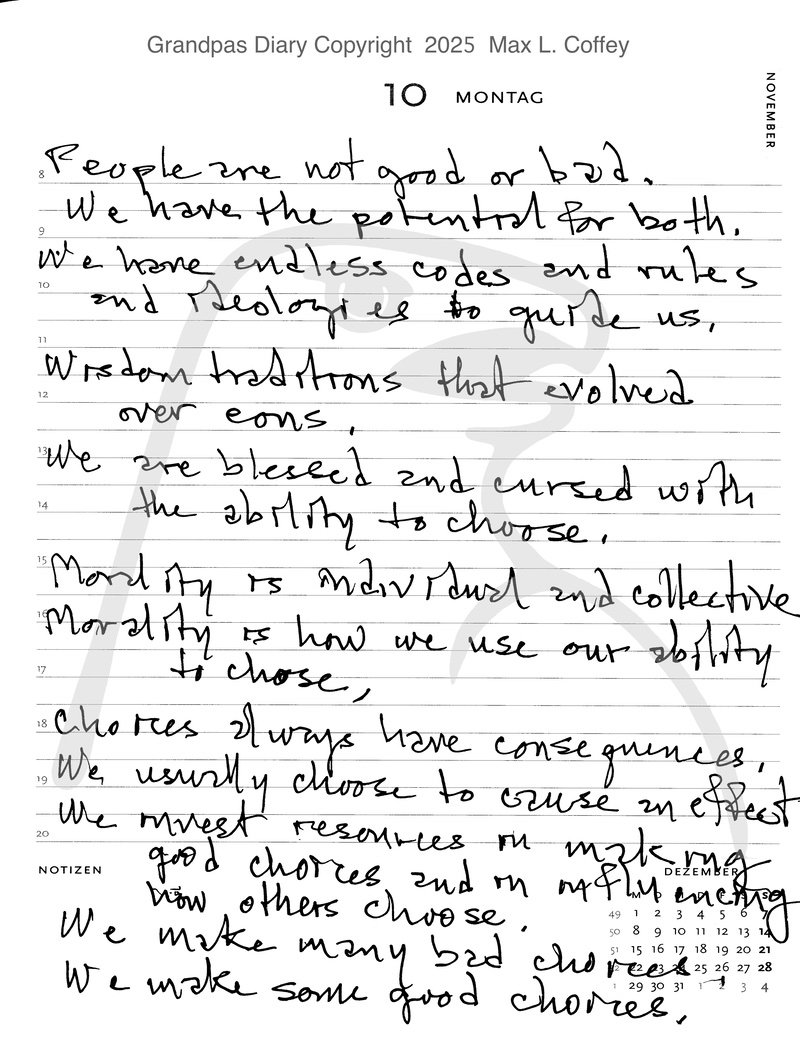 Grandpas Diary Copyright 2025 Max L. Coffey
10 MONTAG
NOVEMBER
8
People are not good or bad.
We have the potential for both.
9
We have endless codes and rules
10
and ideologies to guide us.
11
Wisdom traditions that evolved
12
over eons.
13
We are blessed and cursed with
14
the ability to choose.
15
Morality is individual and collective
16
Morality is how we use our ability
17
to chose,
18
Choices always have consequences.
19
We usually choose to cause an effect
We invest resources in making
20
good choices and in influencing
NOTIZEN
DEZEMBER
how others choose.
We make many bad choices.
We make some good choices.
M D M D F S S
49 1 2 3 4 5 6 7
50 8 9 10 11 12 13 14
51 15 16 17 18 19 20 21
52 22 23 24 25 26 27 28
1 29 30 31 1 2 3 4